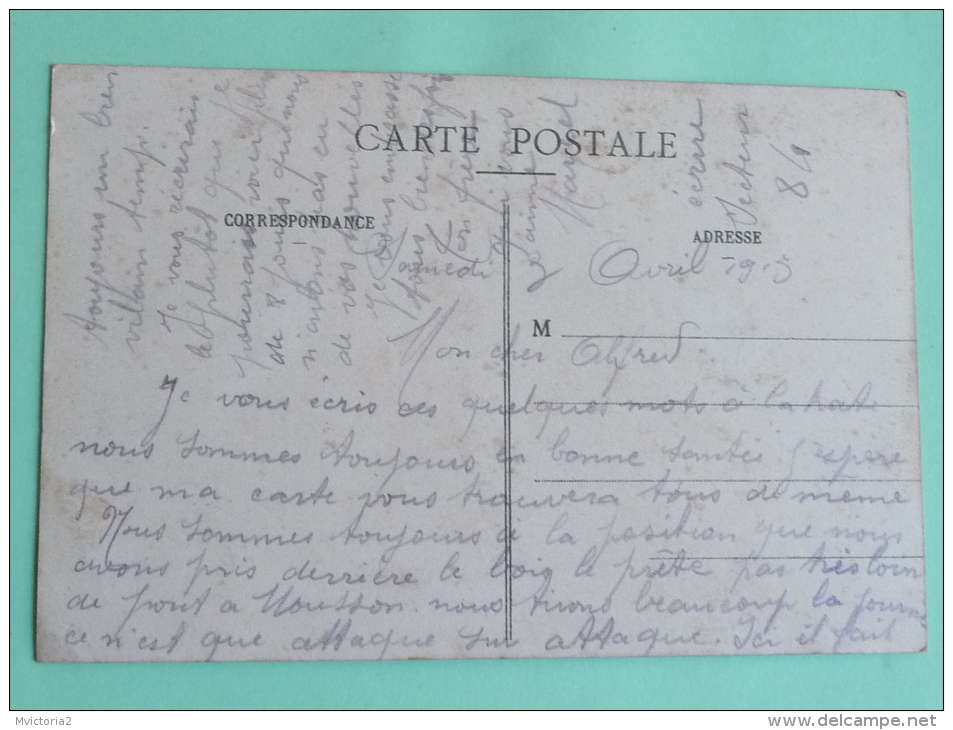 CARTE POSTALE
CORRESPONDANCE
ADRESSE
M
Samedi 3 Avril 1915
Mon cher Alfred.
Je vous écris ces quelques mots à la hate
nous sommes toujours en bonne santée j'espère
que ma carte vous trouvera tous de même
Nous sommes toujours à la position que nous
avons pris derrière le bois le prête pas très loin
de pont a Mousson. nous tirons beaucoup la journé
ce n'est que attaque sur attaque. Ici il fait
toujours un bien
villain temps.
Je vous récrirais
le plutôt que je
pourrais voici plus
de 8 jours que nous
n'avons pas eu
de vos nouvelles
Je vous embrasse
tous bien fort
Ton frère
Marcel
écrire
Secteur
8/1
Mvictoria2
www.delcampe.net